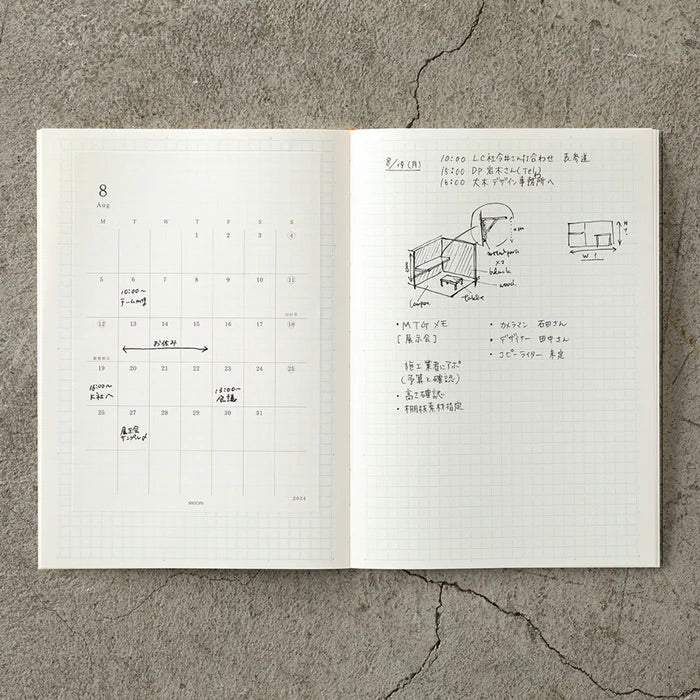 8
Aug
M T W T F S S
1 2 3 4
5 6 7 8 9 10 11
10:00〜
チームMTG
12 13 14 15 16 17 18
お休み
19 20 21 22 23 24 25
15:00〜
K社へ
13:00〜
会議
26 27 28 29 30 31
展示会
サンプル〆
MIDORI
2024
8/19 (月)
10:00 LC社今井さん打合わせ
15:00 DP岩木さん(Tel)
16:00 大木デザイン事務所へ
×2
black
wood
table
W
・MTGメモ
[展示会]
施工業者にアポ
(予算と確認)
・高さ確認
・棚板素材指定
・カメラマン 石田さん
・デザイナー 田中さん
・コピーライター 未定